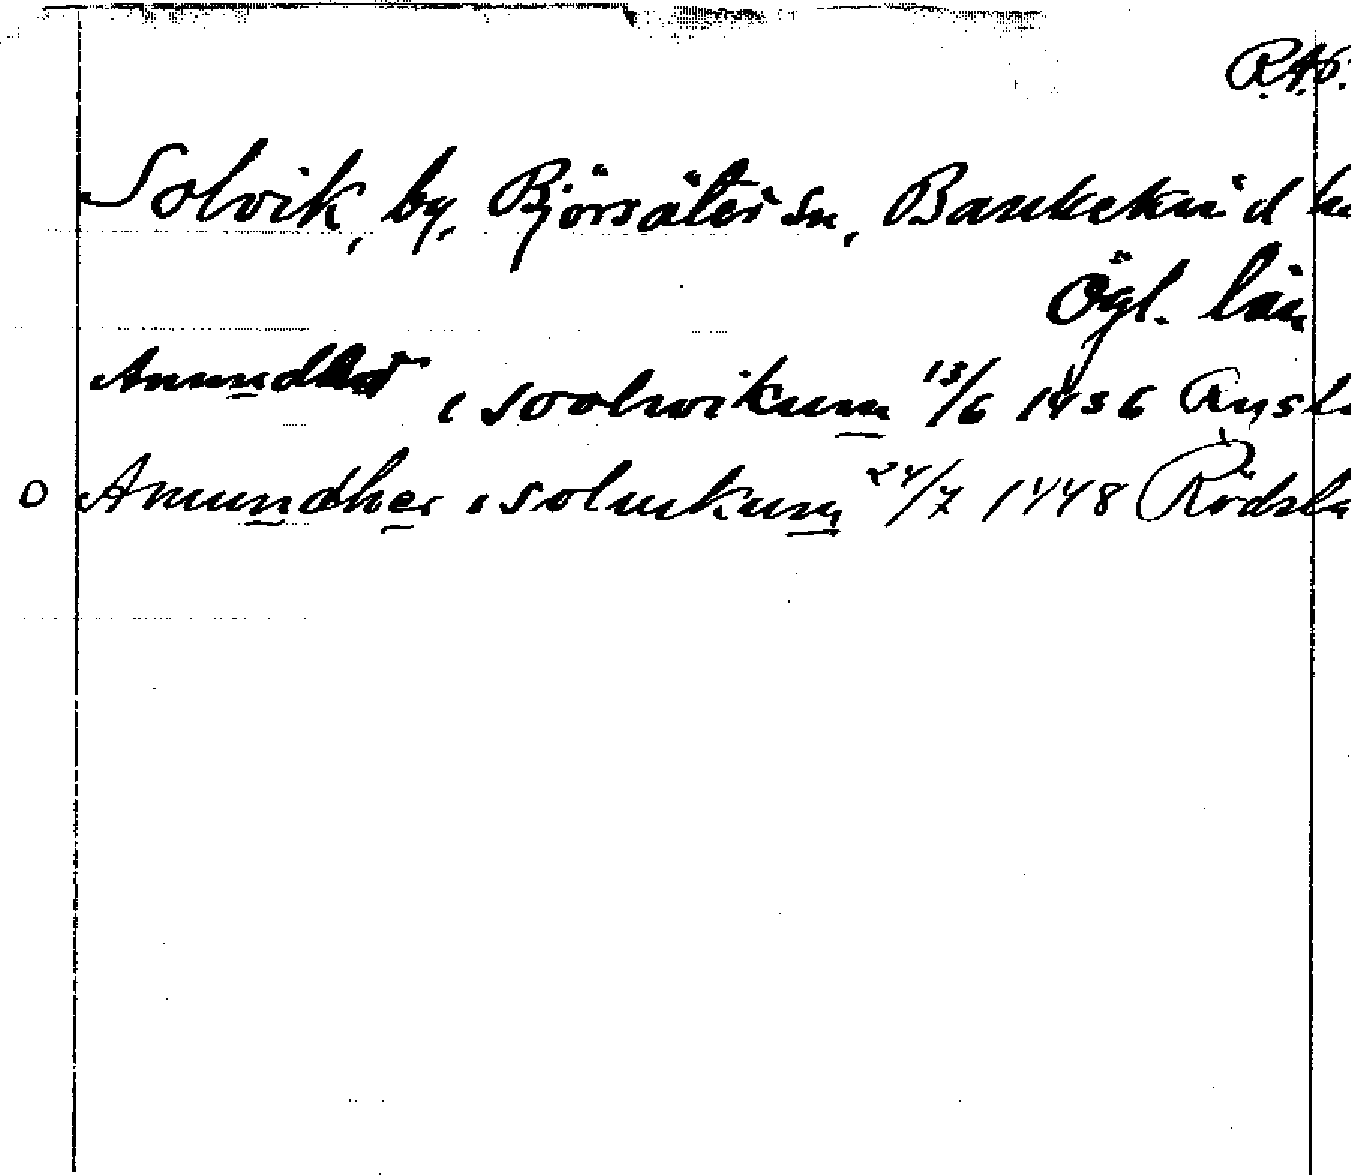 R.A.P.
Solvik, by, Björsäter sn, Bankekind h
Ögl. län
Amundher i soolwikum 13/6 1436
O Amundher i soluikum 24/7 1448 Rödsl